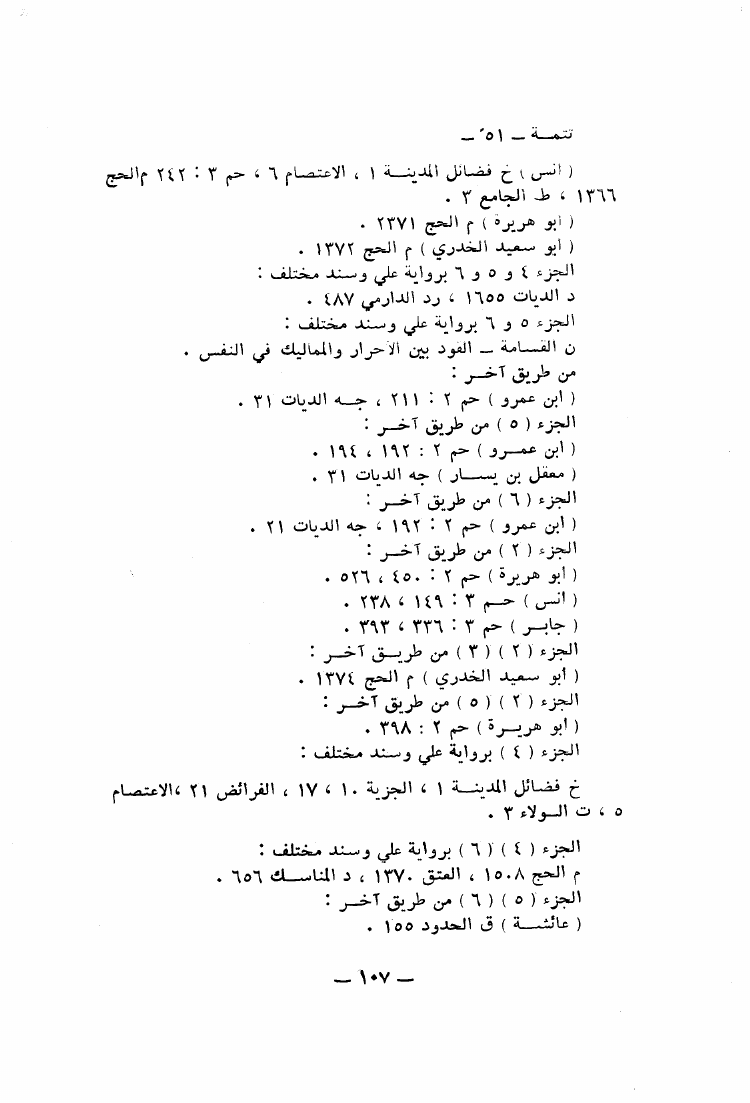 تتمة – ٥١ –
( انس ) خ فضائل المدينة ١ ، الاعتصام ٦ ، حم ٣ : ٢٤٢ م الحج
١٣٦٦ ، ط الجامع ٣ .
( ابو هريرة ) م الحج ٢٣٧١ .
( أبو سعيد الخدري ) م الحج ١٣٧٢ .
الجزء ٤ و ٥ و ٦ برواية علي وسند مختلف :
د الديات ١٦٥٥ ، رد الدارمي ٤٨٧ .
الجزء ٥ و ٦ برواية علي وسند مختلف :
ن القسامة – القود بين الاحرار والمماليك في النفس .
من طريق آخر :
( ابن عمرو ) حم ٢ : ٢١١ ، جه الديات ٣١ .
الجزء ( ٥ ) من طريق آخر :
( ابن عمرو ) حم ٢ : ١٩٢ ، ١٩٤ .
( معقل بن يسار ) جه الديات ٣١ .
الجزء ( ٦ ) من طريق آخر :
( ابن عمرو ) حم ٢ : ١٩٢ ، جه الديات ٢١ .
الجزء ( ٢ ) من طريق آخر :
( أبو هريرة ) حم ٢ : ٤٥٠ ، ٥٢٦ .
( أنس ) حم ٣ : ١٤٩ ، ٢٣٨ .
( جابر ) حم ٣ : ٣٣٦ ، ٣٩٣ .
الجزء ( ٢ ) ( ٣ ) من طريق آخر :
( أبو سعيد الخدري ) م الحج ١٣٧٤ .
الجزء ( ٢ ) ( ٥ ) من طريق آخر :
( ابو هريرة ) حم ٢ : ٣٩٨ .
الجزء ( ٤ ) برواية علي وسند مختلف :
خ فضائل المدينة ١ ، الجزية ١٠ ، ١٧ ، الفرائض ٢١ ،الاعتصام
٥ ، ت الولاء ٣ .
الجزء ( ٤ ) ( ٦ ) برواية علي وسند مختلف :
م الحج ١٥٠٨ ، العتق ١٣٧٠ ، د المناسك ٦٥٦ .
الجزء ( ٥ ) ( ٦ ) من طريق آخر :
( عائشة ) ق الحدود ١٥٥ .
– ١٠٧ –